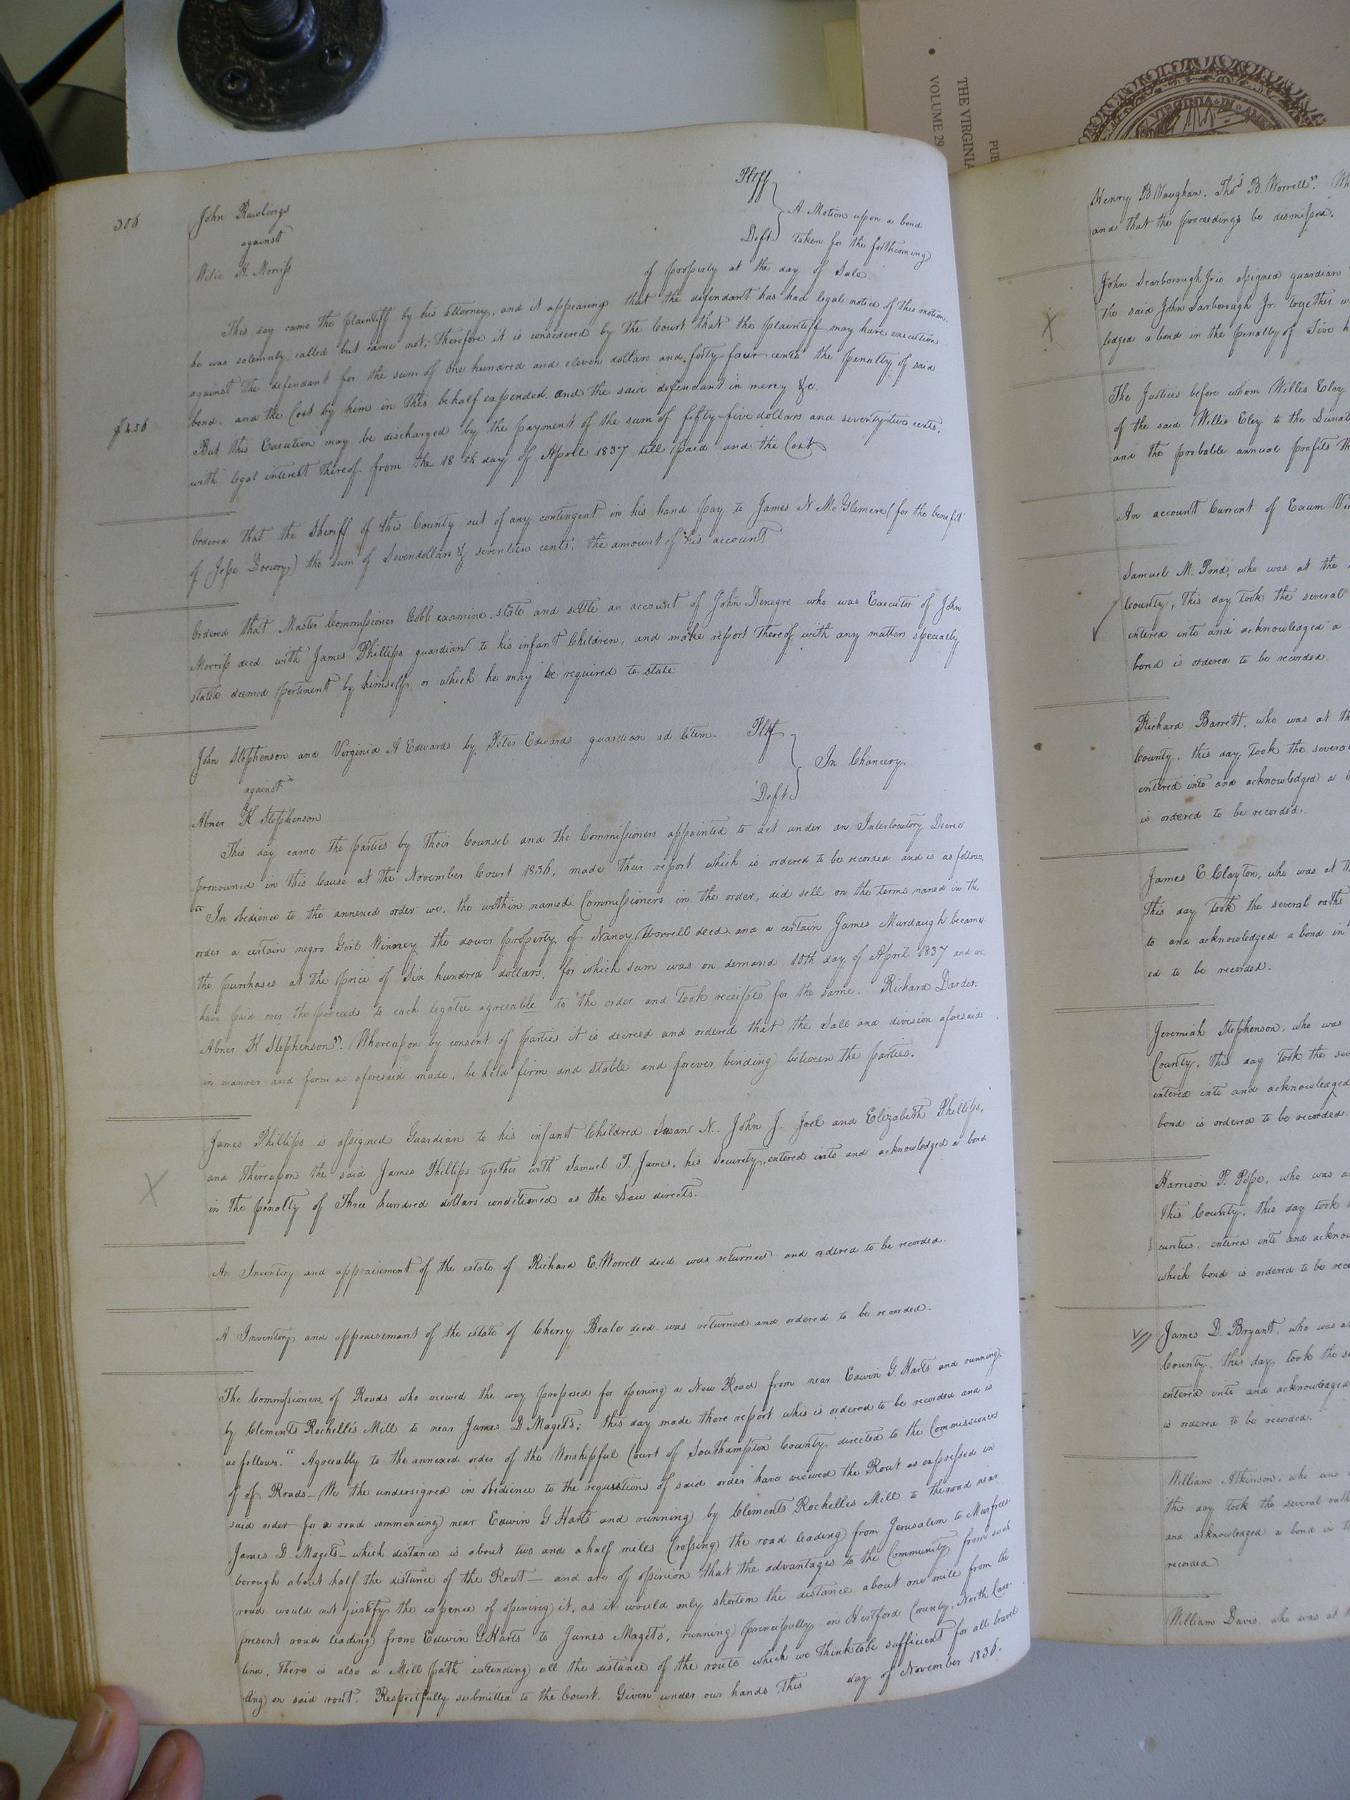 John Rawlings Pltff
against A Motion upon a bond
Deft taken for the forthcoming
H. Morriss of property at the day of Sale.
This day came the plaintiff by his Attorney, and it appearing that the defendant has had legal notice of this motion
he was solemnly called but came not; Therefore it is considered by the Court that the plaintiff may have execution
against the defendant for the sum of One hundred and eleven dollars and forty-four cents the penalty of said
bond. and the Cost by him in this behalf expended. and the said defendant in mercy &c.
But this Execution may be discharged by the payment of the sum of fifty-five dollars and seventy-two cents,
with legal interest thereof from the 18th day of April 1837 till paid and the Cost
Ordered that the Sheriff of this County out of any contingent in his hand pay to James N McGlemere (for the benefit
of Jesse Drewry) the sum of Seven dollars & seventeen cents. the amount of his account
Ordered that Master Commissioner Cobb examine, state and settle an account of John Denegre who was Executor of John
Morriss decd. with James Phillips guardian to his infant Children, and make report thereof with any matters specially
stated deemed pertinent by himself, or which he may be required to state
John Stephenson and Virginia A Edwards by Peter Edwards guardian ad litem. Pltf
against In Chancery
Abner H Stephenson Deft
This day came the parties by their Counsel and the Commissioners appointed to act under an Interlocutory Decree
pronounced in this Cause at the November Court 1836, made their report which is ordered to be recorded and is as follows
"In obedience to the annexed order we, the within named Commissioners in the order, did sell on the terms named in the
order a certain negro Girl Winney the dower property of Nancy Worrell decd. and a certain James Murdaugh became
the purchaser at the price of Six hundred dollars, for which sum was on demand 10th day of April 1837 and we
have paid over the proceeds to each legatee agreeable to the order and took receipts for the same. Richard Darden
Abner H Stephenson". Whereupon by consent of parties it is decreed and ordered that the Sale and division aforesaid
in manner and form as aforesaid made, be held firm and stable and forever binding between the parties.
James Phillips is assigned Guardian to his infant Children Susan N. John J. Joel and Elizabeth Phillips,
and thereupon the said James Phillips together with Samuel T. James, his Security, entered into and acknowledged a bond
in the penalty of Three hundred dollars conditioned as the Law directs.
An Inventory and appraisement of the estate of Richard E. Worrell decd was returned and ordered to be recorded.
A Inventory and appraisement of the estate of Cherry Beale decd. was returned and ordered to be recorded.
The Commissioners of Roads who viewed the way proposed for opening a New Road from near Edwin G. Harts and running
by Clements Rochelle's Mill to near James D Magets; this day made there report whis is ordered to be recorded and is
as follows. "Agreeably to the annexed order of the Worshipful Court of Southampton County, directed to the Commissioners
of of Roads - We the undersigned in obedience to the requisitions of said order have viewed the Rout as expressed in
said order for a road commencing near Edwin G Harts and running by Clements Rochelles Mill to the road near
James D. Magets - which distance is about two and a half miles Crossing the road leading from Jerusalem to Murfrees
borough about half the distance of the Rout - and are of opinion that the advantages to the Community from such
road would not justify the expence of opening it, as it would only shorten the distance about one mile from the
present road leading from Edwin G Harts to James Magets, running principally in Hertford County, North Caro
lina. There is also a Mill path extending all the distance of the route which we think to be sufficient for all travel
ling on said rout. Respectfully submitted to the Court. Given under our hands this day of November 1836.
THE VIRGINIA
VOLUME 29
Henry B Vaughan. Thos B. Worrell".
and that the proceedings be dismissed.
John Scarborough Jr is assigned guardian
the said John Scarborough Jr. together
ledged a bond in the penalty of Five
The Justices before whom Willis Eley
of the said Willis Eley to the
and the probable annual profits
An account Current of
Samuel M. Pond, who was at the
County, this day took the several
entered into and acknowledged a
bond is ordered to be recorded.
Richard Barrett, who was at
County, this day took the several
entered into and acknowledged a
is ordered to be recorded.
James E. Clayton, who was at
This day took the several oaths
to and acknowledged a bond in
ed to be recorded.
Jeremiah Stephenson, who was
County, this day took the
entered into and acknowledged
bond is ordered to be recorded.
Harrison P. Pope, who was
this County, this day took
curities, entered into and
which bond is ordered to be
James D. Bryant, who was
County, this day took the
entered into and acknowledged
is ordered to be recorded.
William Atkinson, who was
this day took the several oaths
and acknowledged a bond in
recorded
William Davis, who was at